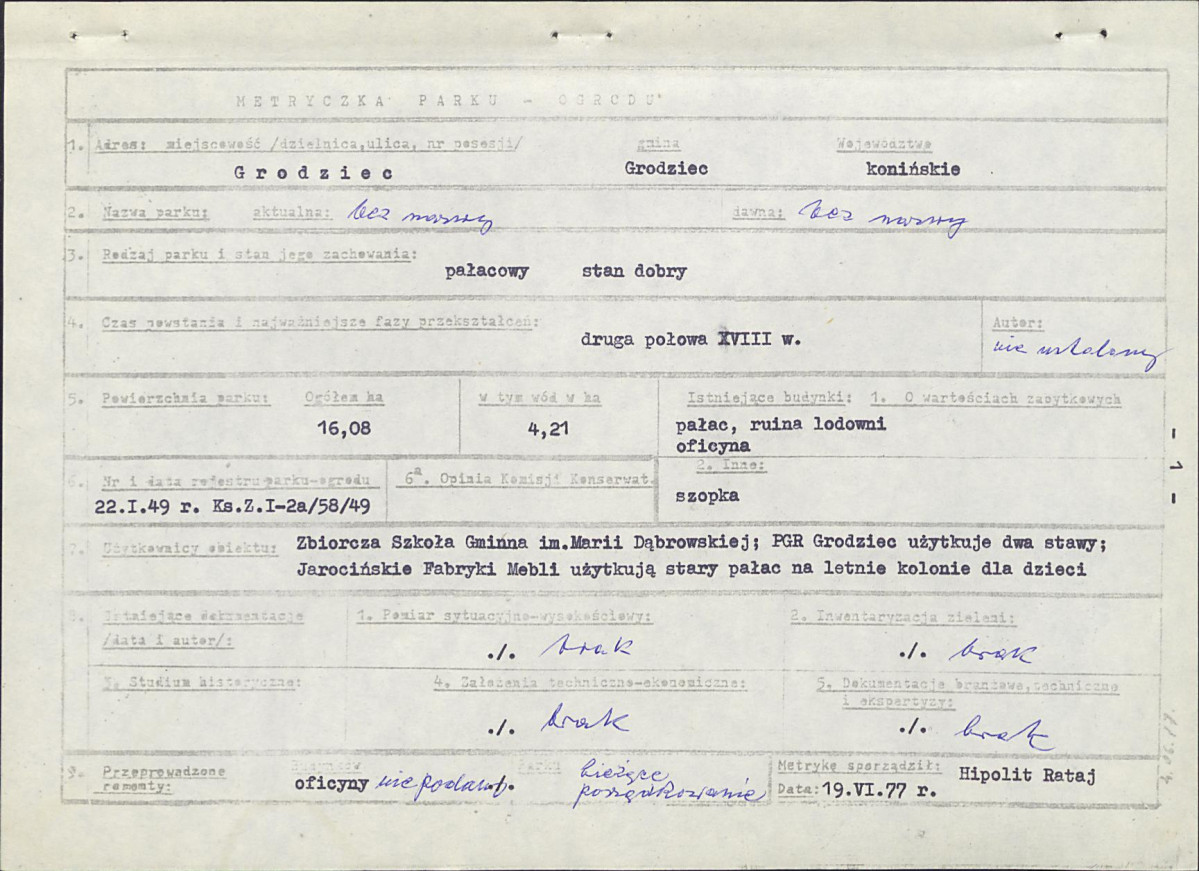 METRYCZKA PARKU - OGRODU
1. Adres: miejscowość /dzielnica,ulica, nr posesji/ gmina Województwo
Grodziec Grodziec konińskie
2. Nazwa parku: aktualna: bez nazwy dawna: bez nazwy
3. Rodzaj parku i stan jego zachowania:
pałacowy stan dobry
4. Czas powstania i najważniejsze fazy przekształceń: Autor:
druga połowa XVIII w. nie ustalony
5. Powierzchnia parku: Ogółem ha w tym wód w ha Istniejące budynki: 1. O wartościach zabytkowych
16,08 4,21 pałac, ruina lodowni
oficyna
6. Nr i data rejestru parku-ogrodu 6a. Opinia Komisji Konserwat. 2. Inne:
22.I.49 r. Ks.Z.I-2a/58/49 szopka
7. Użytkownicy obiektu: Zbiorcza Szkoła Gminna im.Marii Dąbrowskiej; PGR Grodziec użytkuje dwa stawy;
Jarocińskie Fabryki Mebli użytkują stary pałac na letnie kolonie dla dzieci
8. Istniejące dokumentacje 1. Pomiar sytuacyjno-wysokościowy: 2. Inwentaryzacja zieleni:
/data i autor/: ./. brak ./. brak
3. Studium historyczne: 4. Założenia techniczno-ekonomiczne: 5. Dokumentacje branżowe,techniczne
i ekspertyzy:
./. brak ./. brak
9. Przeprowadzone remonty: Budynków Parku Metrykę sporządził: Hipolit Rataj
oficyny nie podano ./. bieżące
porządkowanie Data: 19.VI.77 r.
- 1 -